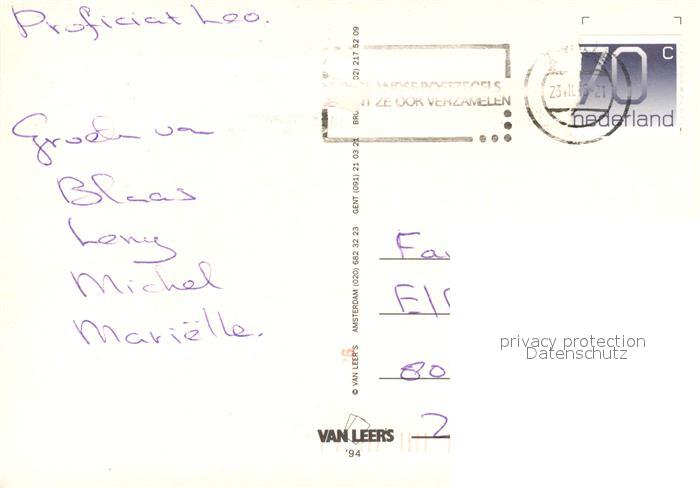 Proficiat Leo.
Groeten van
Blaas
Leny
Michel
Mariëlle.
© VAN LEER'S AMSTERDAM (020) 682 32 23 GENT (091) 21 03 21 BRU 02) 217 52 09
LANDSE POSTZEGELS
ZE OOK VERZAMELEN
70 C
nederland
Fa
E/
80
2
privacy protection
Datenschutz
VAN LEER'S
'94